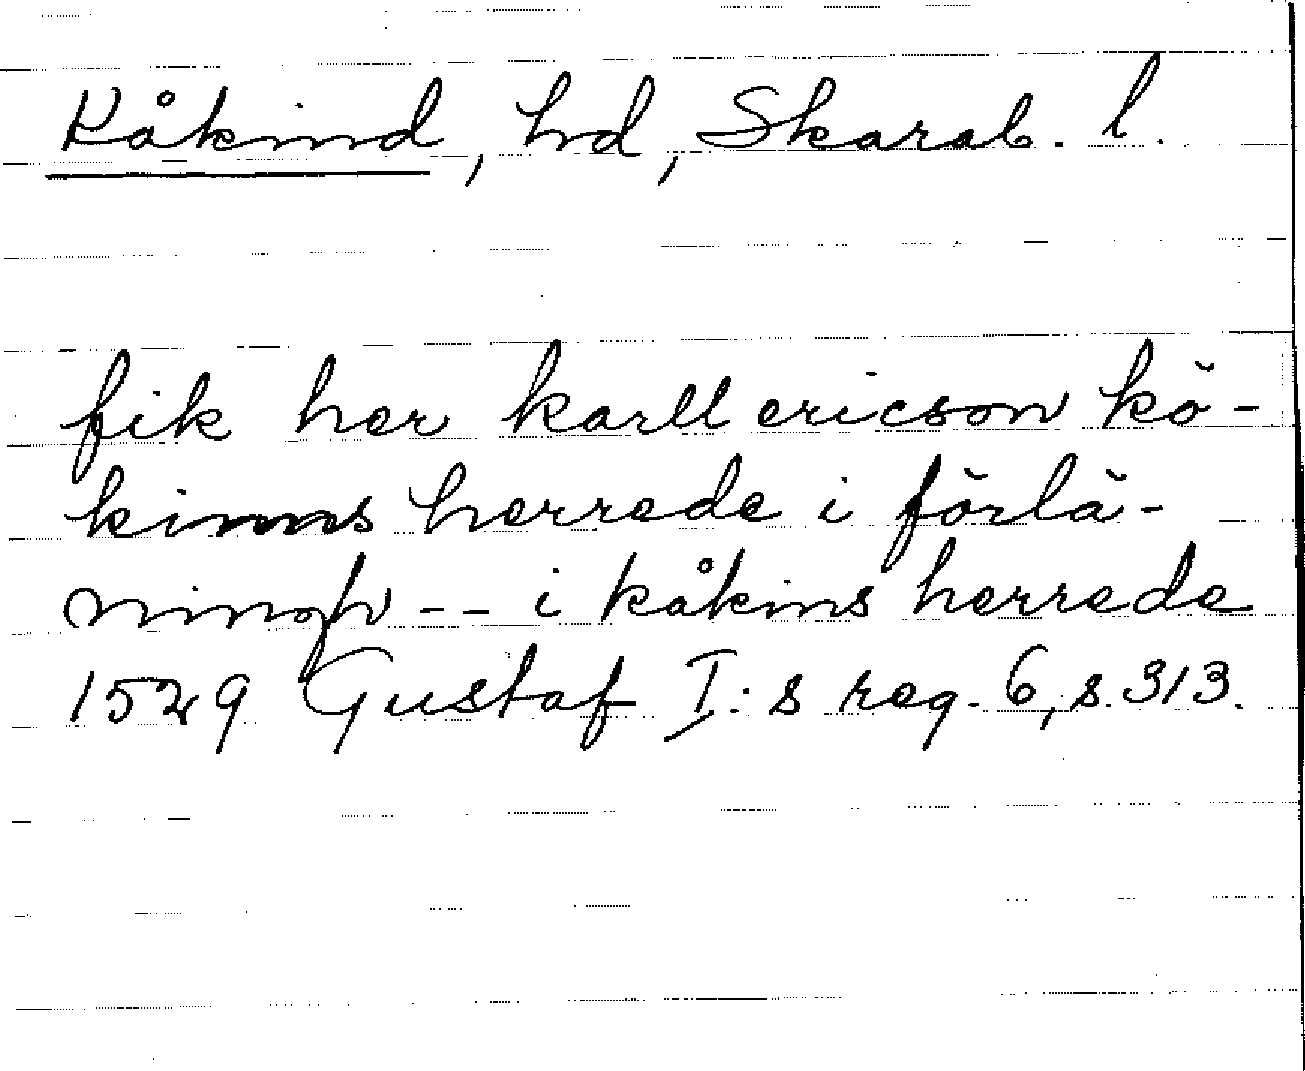 Kåkind, hd, Skarab. l.
fik her karll ericson kö-
kinns herrede i förlä-
ningh -- i kåkins herrede
1529 Gustaf I:s reg. 6, s. 313.